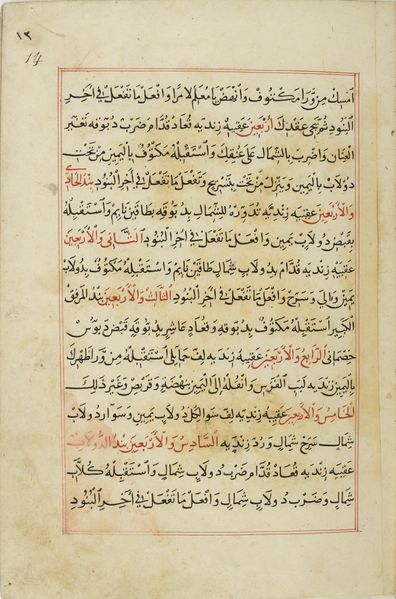 ١٣
14
امسك من ورا مكتوف وانهض يا معلم لامرا وافعل ما تفعل في اخر
البنود ثم تجي عقدك اربعين عقبيه زنديه قعاد قدام ضرب دبوقه تغبير
العنان واضرب بالشمال على عنقك واستقبله مكتوف باليمين من تحت
دولاب باليمين وينزل من تحت بتسريح وتفعل ما تفعل في اخر البنود بند الحادي
والاربعين عقبيه زنديه تدوره للشمال بدبوقه بطاقين نايم واستقبله
بقبض دولاب يمين وافعل ما تفعل في اخر البنود الثاني والاربعين
عقبيه زنديه قدام بدولاب شمال طاقين نايم واستقبله مكتوف بدولاب
يمين وسرح وافعل ما تفعل في اخر البنود الثالث والاربعين بند المرفق
الكبير استقبله مكتوف بدبوقه وقعاد عاشر بدبوقه قبض دبوس
خصماني الرابع والاربعين عقبيه زنديه لف حمايلي استقبله من ورا ظهرك
باليمين زنديه لبب الفرس وانقله الى اليمين بنهضه وقربص وغير ذلك
الخامس والاربعين عقبيه زنديه لف سوا الكل دولاب يمين وسوا رد ولاب
شمال سرح شمال ورد زنديه السادس والاربعين بند الدولاب
عقبيه زنديه قعاد قدام ضرب دولاب شمال واستقبله كلاب
شمال وضرب دولاب شمال وافعل ما تفعل في اخر البنود